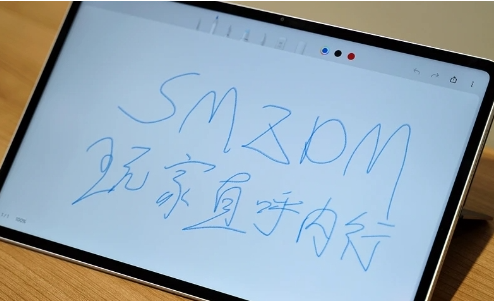 SMZDM
玩家直呼内行